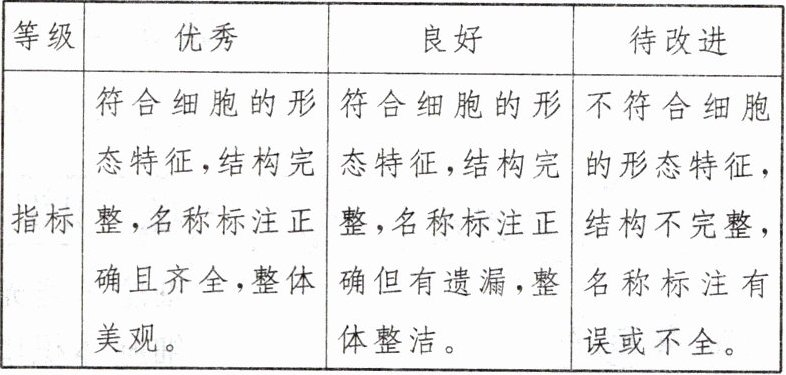 等级 优秀 良好 待改进
指标
符合细胞的形
态特征，结构完
整，名称标注正
确且齐全，整体
美观。
符合细胞的形
态特征，结构完
整，名称标注正
确但有遗漏，整
体整洁。
不符合细胞
的形态特征，
结构不完整，
名称标注有
误或不全。